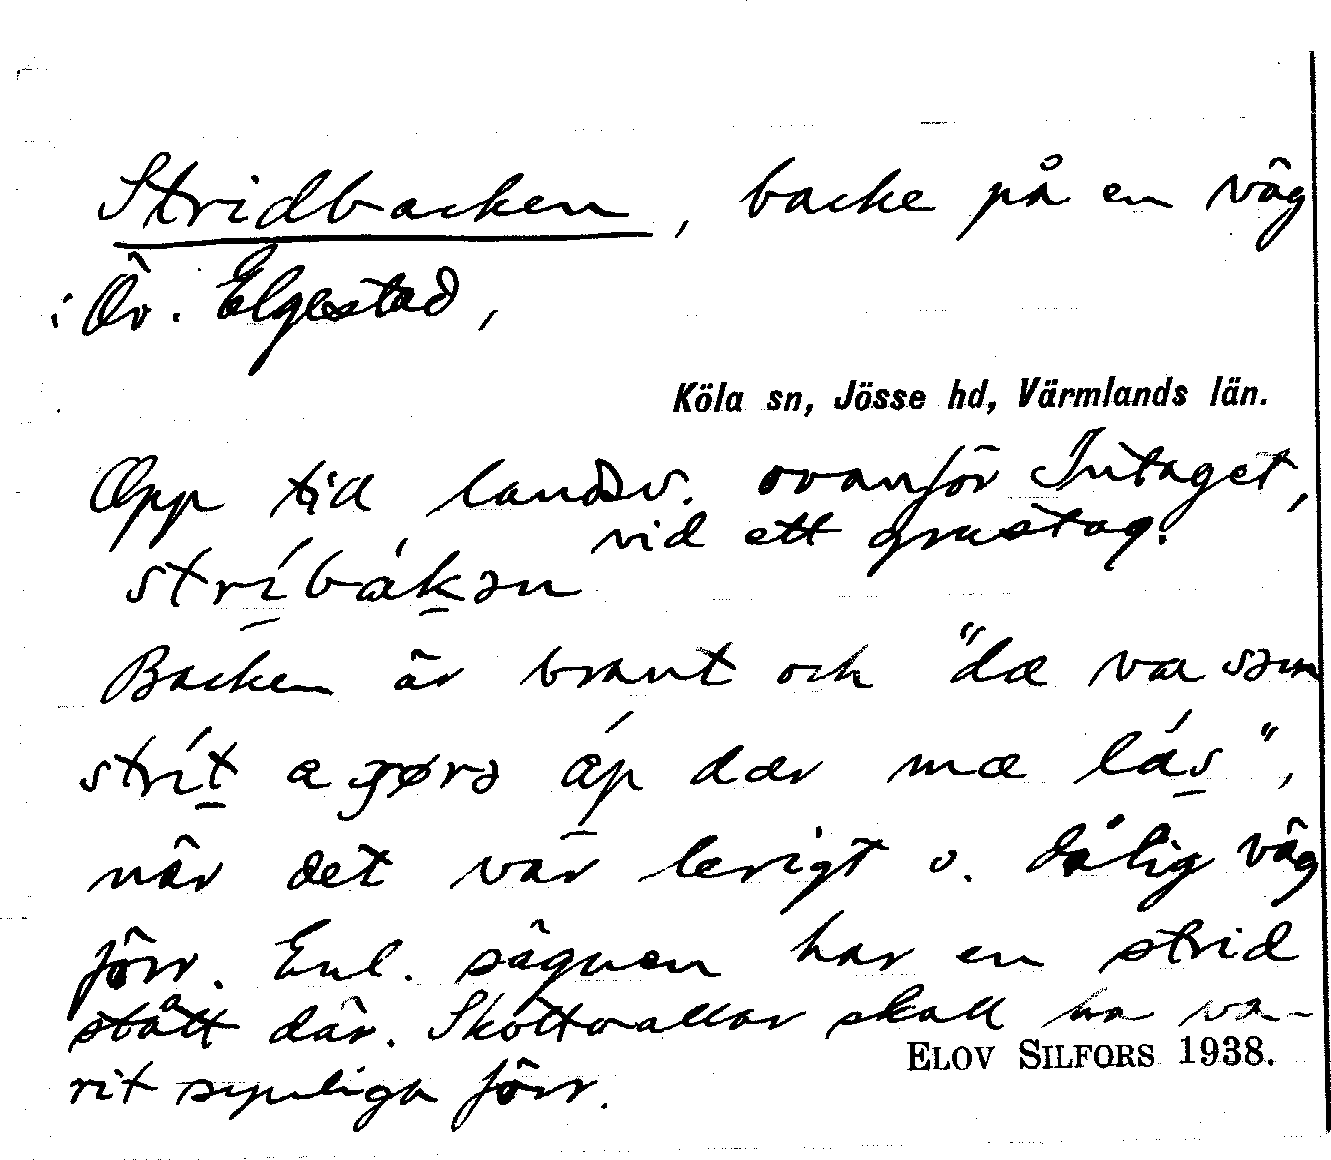 Stridbacken, backe på en väg
i Öv. Elgestad,
Köla sn, Jösse hd, Värmlands län.
Opp tid landsv. ovanför Intaget,
vid ett grustag.
stríbákən
Backen är brant och "dæ va səm
strít a gørə áp dær mæ lás",
när det var lerigt o. dålig väg
förr. Enl. sägnen har en strid
stått där. Skottvallar skall ha va-
rit synliga förr.
ELOV SILFORS 1938.